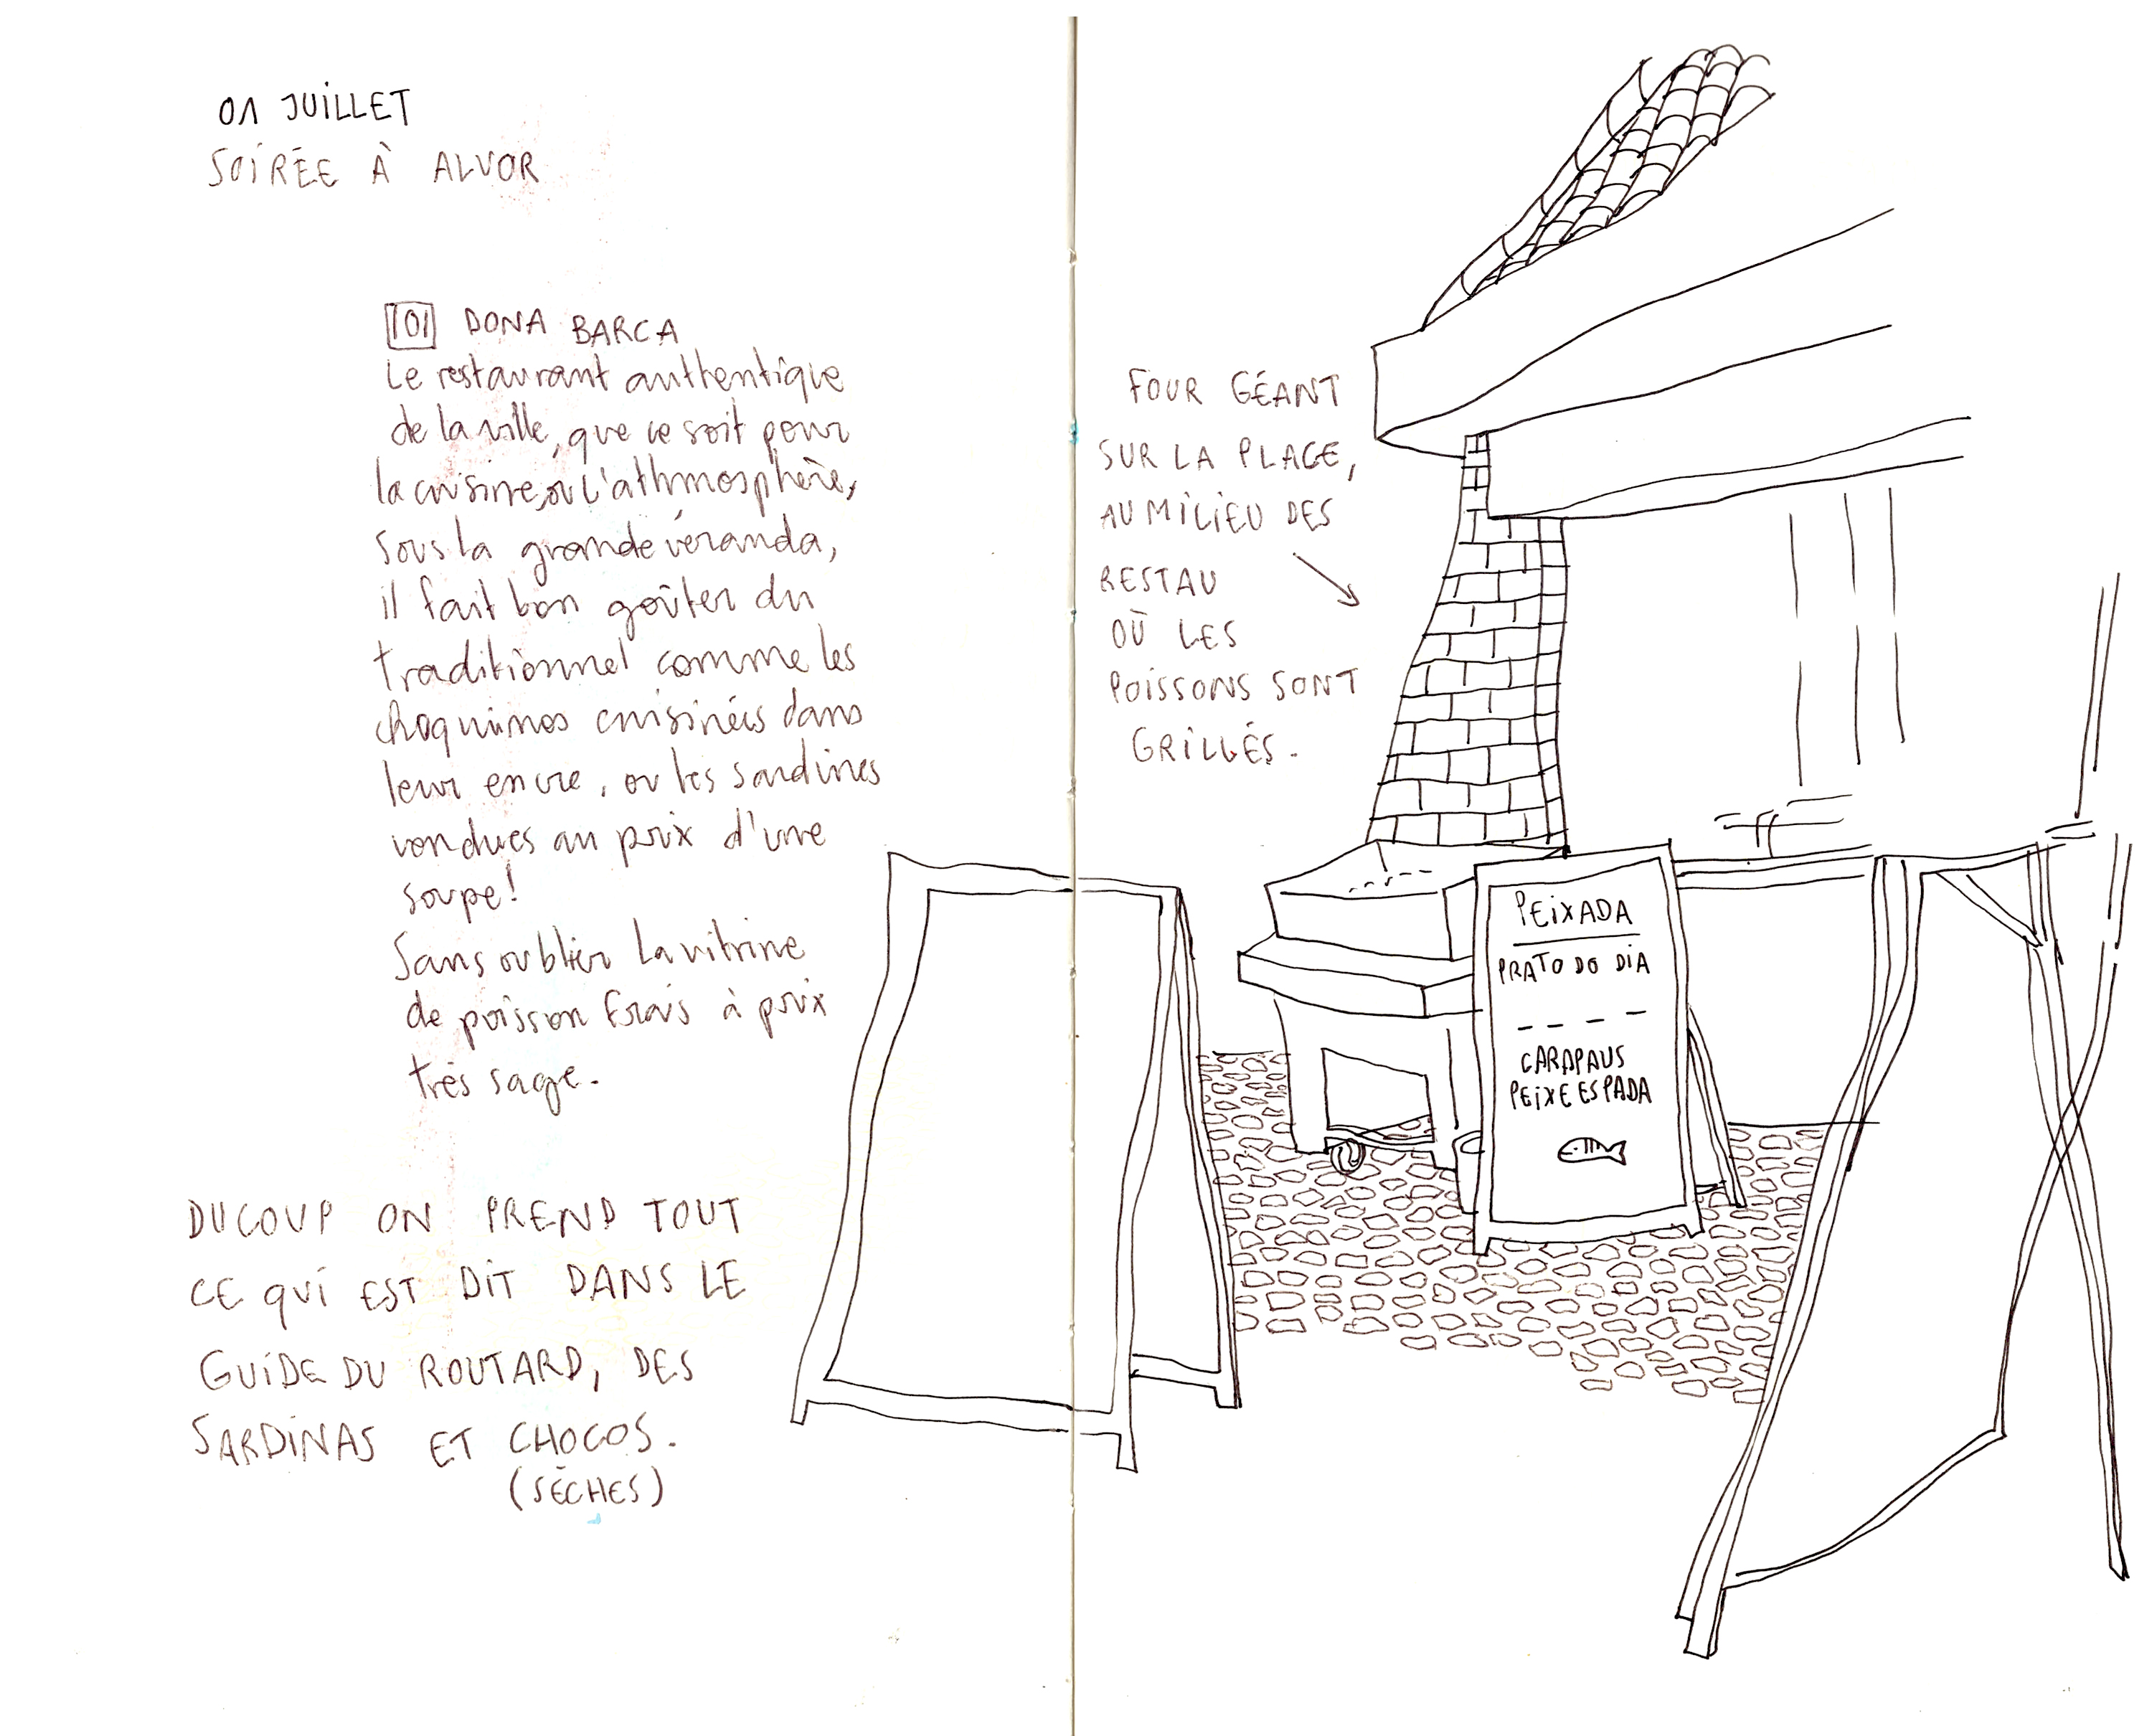 01 JUILLET
SOIRÉE À ALVOR
|O| DONA BARCA
Le restaurant authentique
de la ville, que ce soit pour
la cuisine, ou l'athmosphère,
sous la grande véranda,
il fait bon goûter du
traditionnel comme les
choquinos cuisinées dans
leur encre, ou les sardines
vendues au prix d'une
soupe!
Sans oublier la vitrine
de poisson frais à prix
très sage.
DUCOUP ON PREND TOUT
CE QUI EST DIT DANS LE
GUIDE DU ROUTARD, DES
SARDINAS ET CHOCOS.
(SÈCHES)
FOUR GÉANT
SUR LA PLAGE,
AU MILIEU DES
RESTAU
OÙ LES
POISSONS SONT
GRILLÉS.
PEIXADA
PRATO DO DIA
CARAPAUS
PEIXE ESPADA